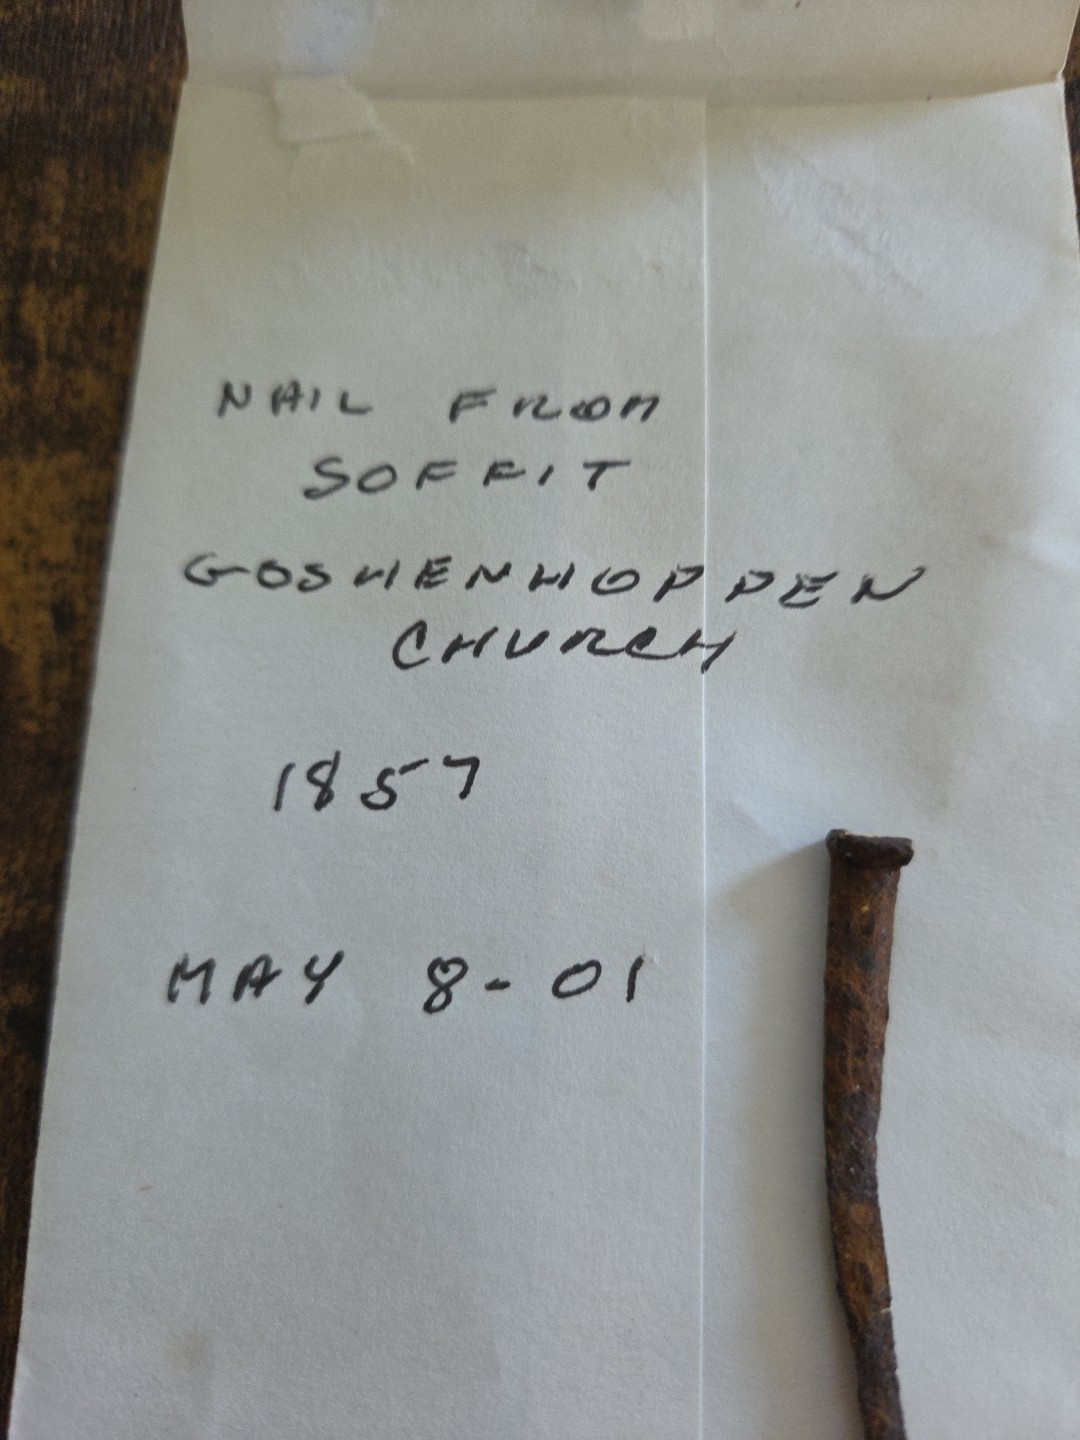 NAIL FROM
SOFFIT
GOSHENHOPPEN
CHURCH
1857
MAY 8-01